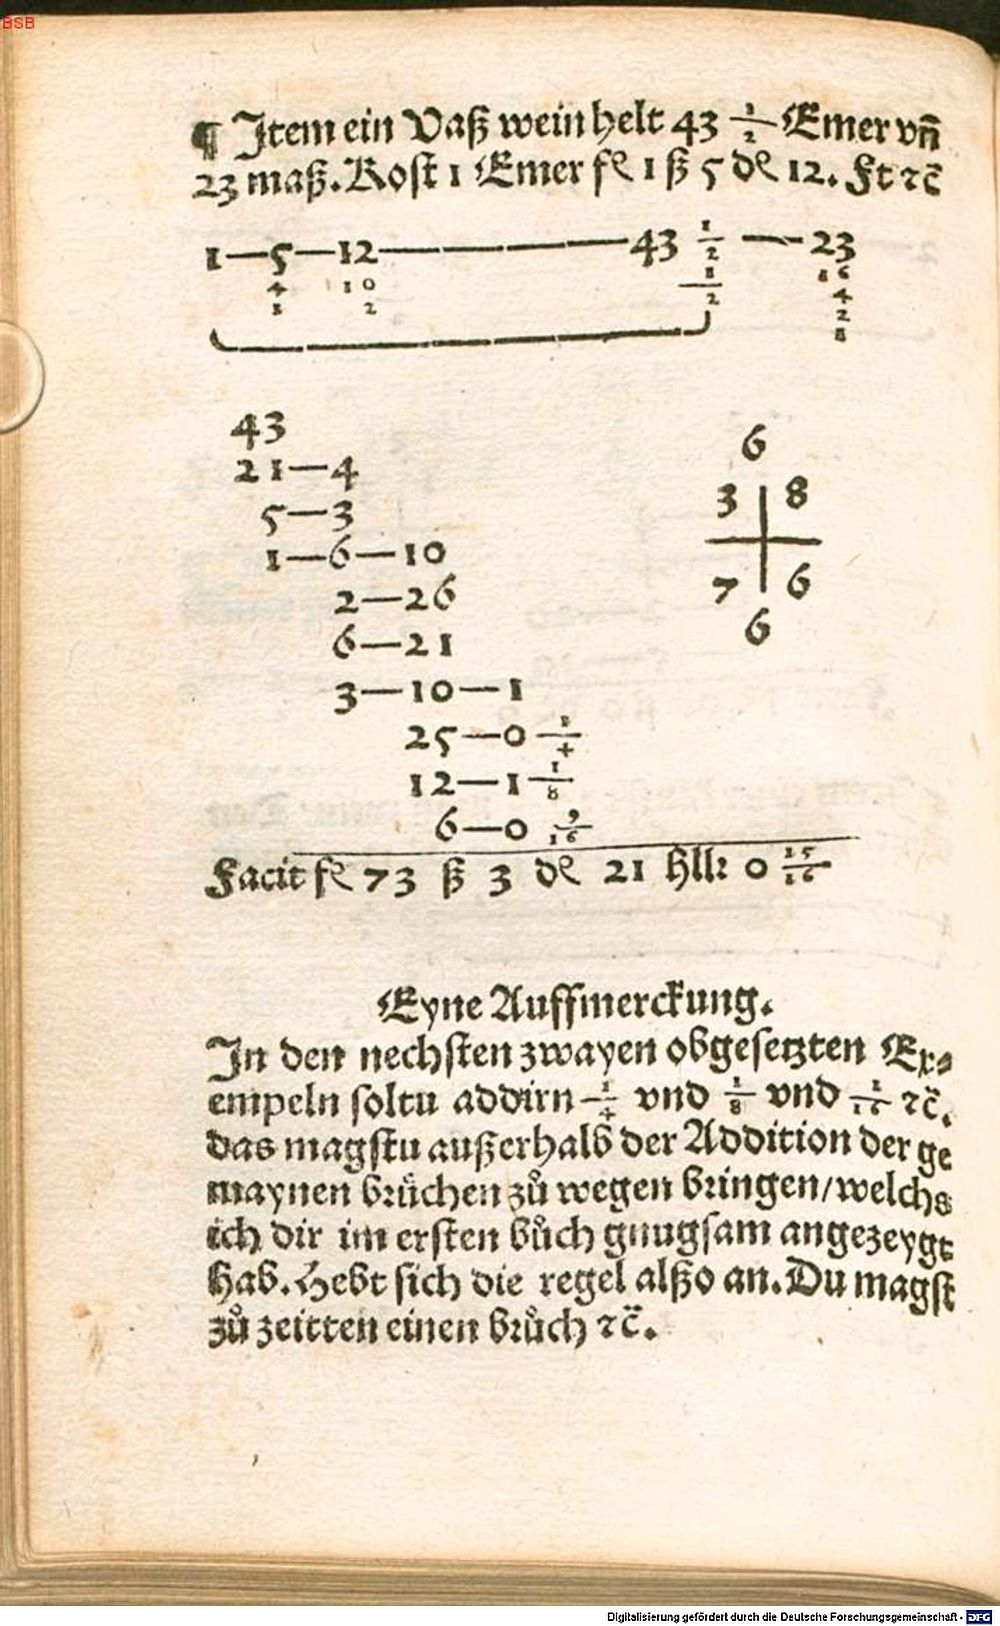 BSB
¶ Item ein Vaß wein helt 43 1/2 Emer vn̄
23 maß. Kost 1 Emer fl 1 ß 5 dl 12. Ft ⁊c̄
1—5—12————43 1/2 —23
4 10 1/2 16
1 2 4
2
8
43
21—4
5—3
1—6—10
2—26
6—21
3—10—1
25—0 1/4
12—1 1/8
6—0 9/16
6
3 8
7 6
6
Facit fl 73 ß 3 dl 21 hllr 0 15/16
Eyne Auffmerckung.
In den nechsten zwayen obgesetzten Ex⸗
empeln soltu addirn 1/4 vnd 1/8 vnd 1/16 ⁊c̄.
das magstu außerhalb der Addition der ge
maynen brüchen zů wegen bringen/welchs
ich dir im ersten bůch gnugsam angezeygt
hab. Hebt sich die regel alßo an. Du magst
zů zeitten einen brůch ⁊c̄.
Digitalisierung gefördert durch die Deutsche Forschungsgemeinschaft - DFG